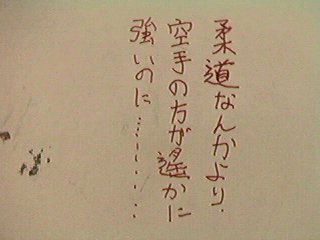 柔道なんかより.
空手の方が遥かに
強いのに………